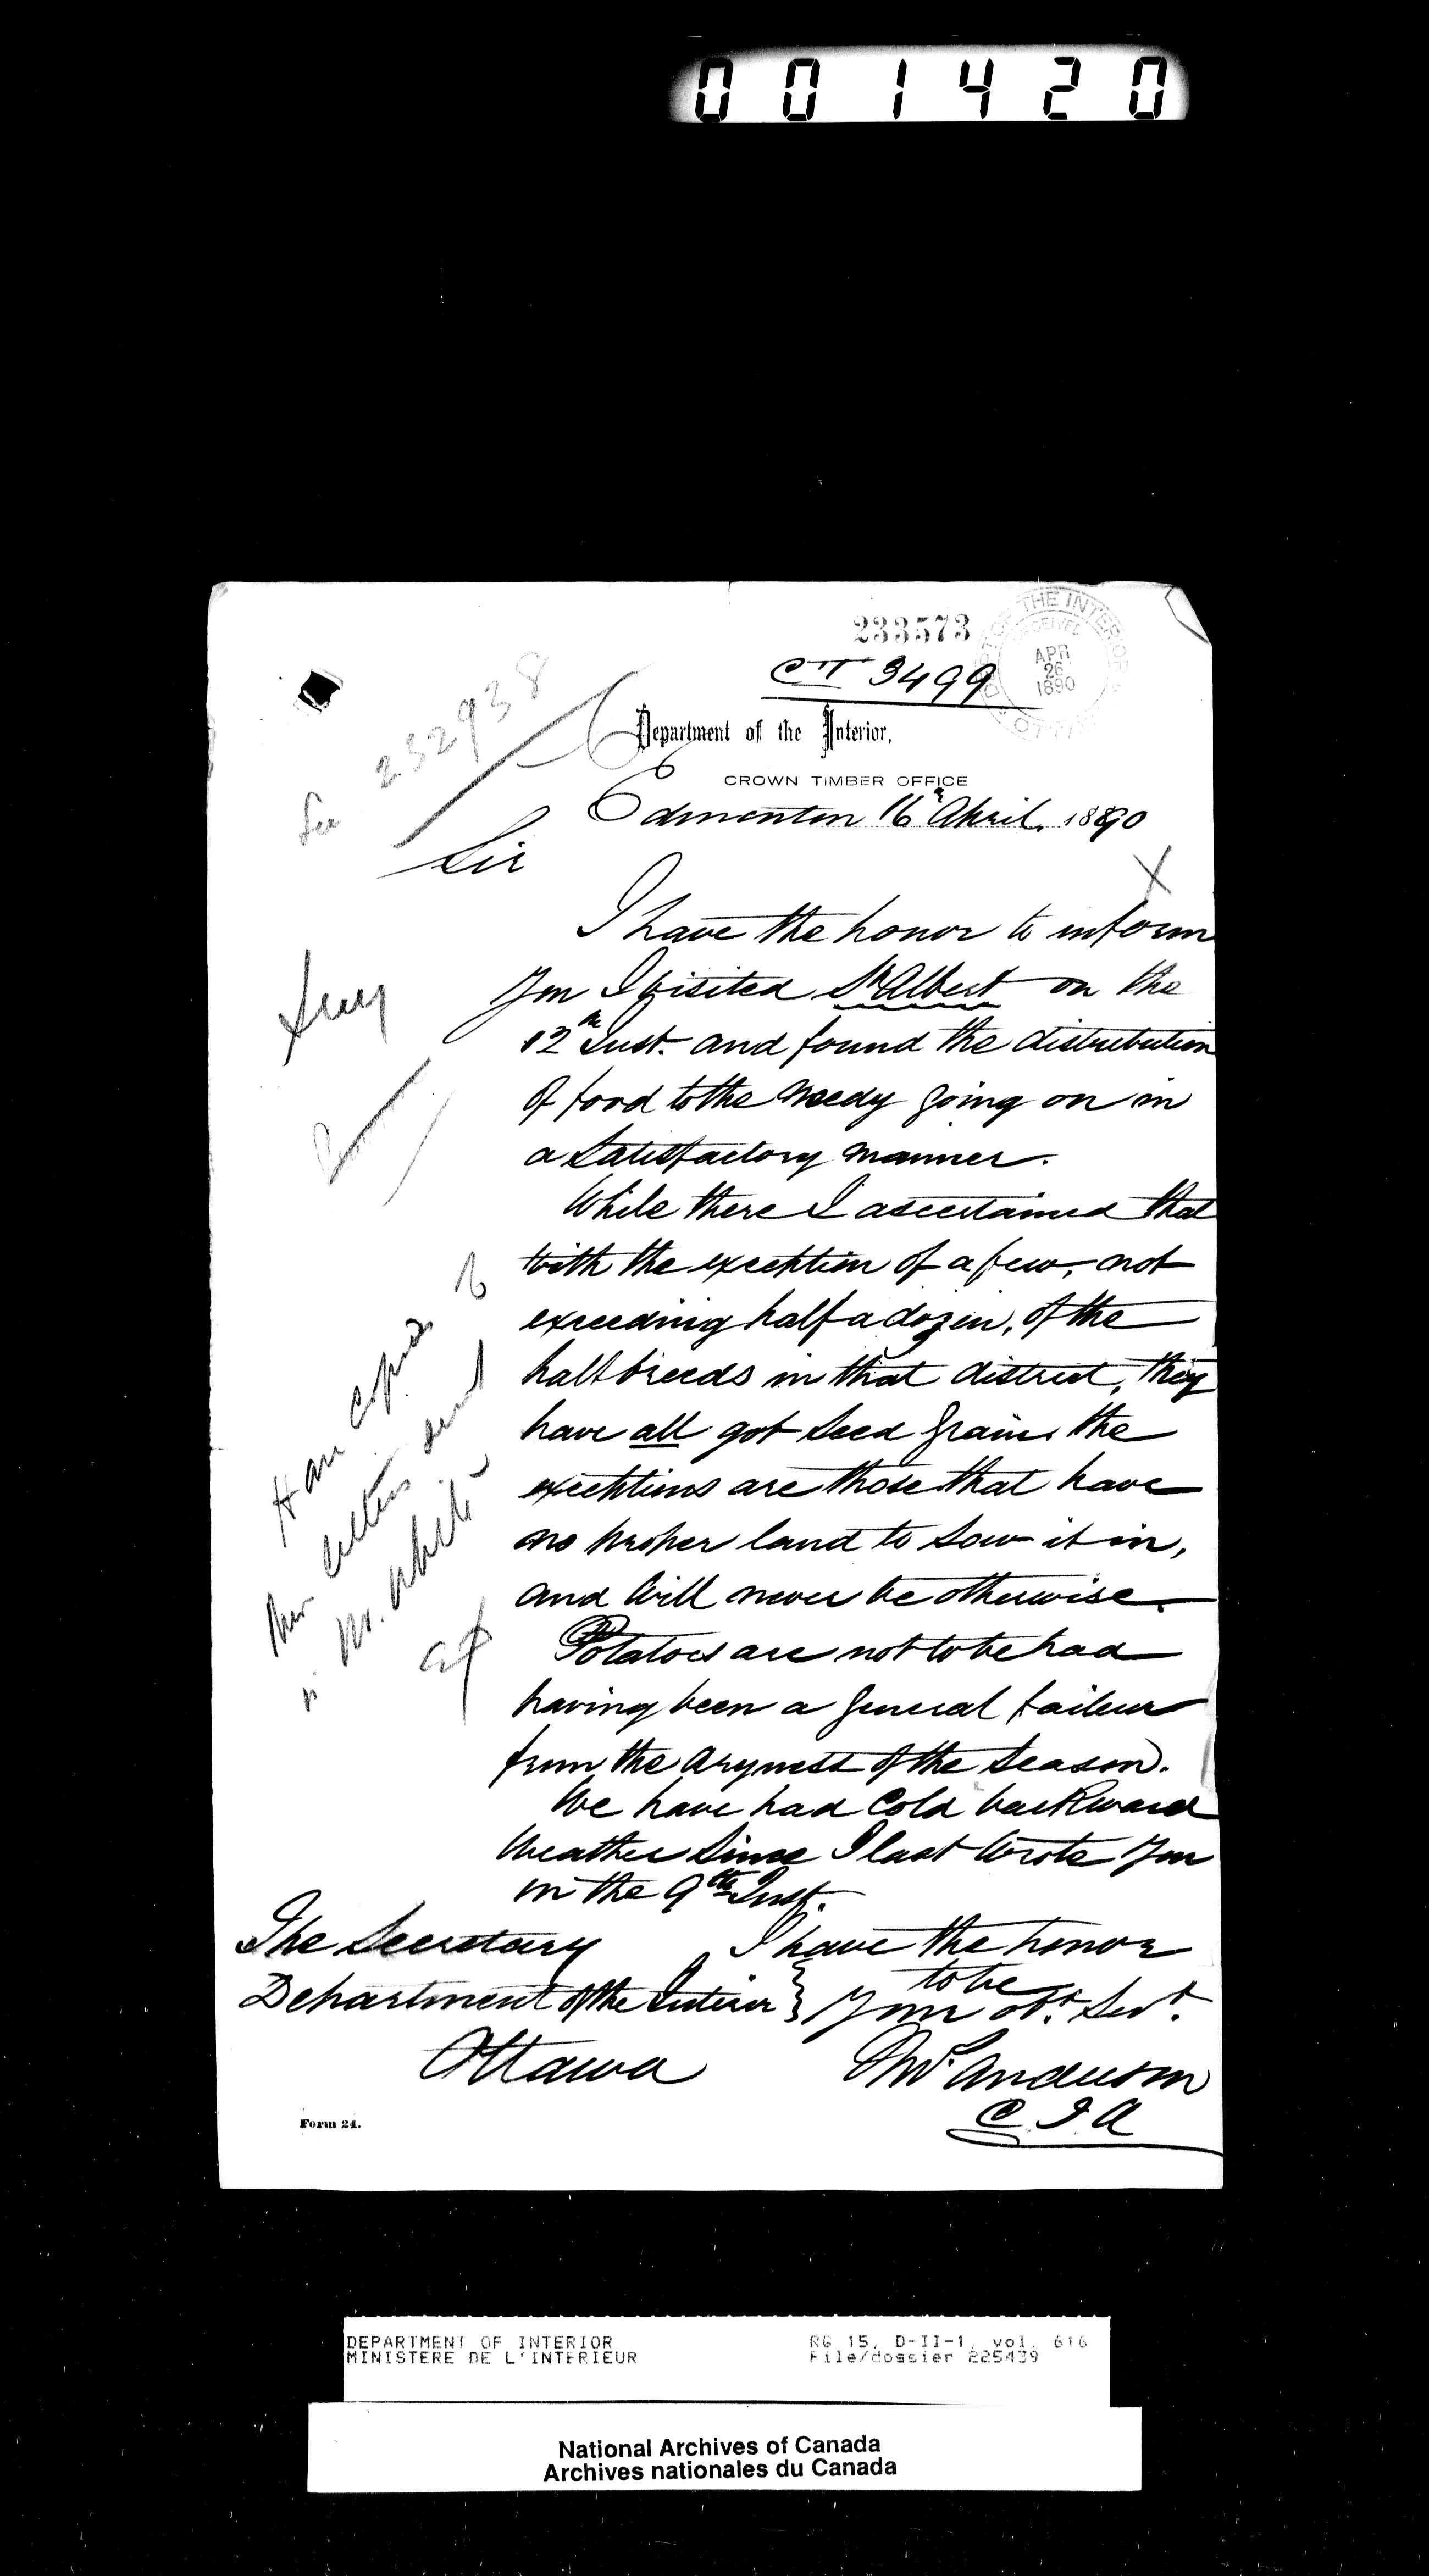 001420
233573
DEPT OF THE INTERIOR
RECEIVED
APR
26
1890
CTT 3499
See 252938
Department of the Interior,
CROWN TIMBER OFFICE
Edmonton 16 April. 1890
Sir
I have the honor to inform
you I visited St Albert on the
12th Inst. and found the distribution
of food to the needy going on in
a satisfactory manner.
While there I ascertained that
with the exception of a few, not
exceeding half a dozen, of the
half breeds in that district, they
have all got seed grain. the
exceptions are those that have
no proper land to sow it in,
and will never be otherwise.
Potatoes are not to be had
having been a general failure
from the dryness of the season.
We have had cold backward
weather since I last wrote you
on the 9th Inst.
Have copies of
letters sent
Mr. White
The Secretary
Department of the Interior
Ottawa
I have the honor
to be
Your obt. Servt.
Anderson
C T A
Form 24.
DEPARTMENT OF INTERIOR
MINISTERE DE L'INTERIEUR
RG 15, D-II-1, vol. 616
File/dossier 225439
National Archives of Canada
Archives nationales du Canada